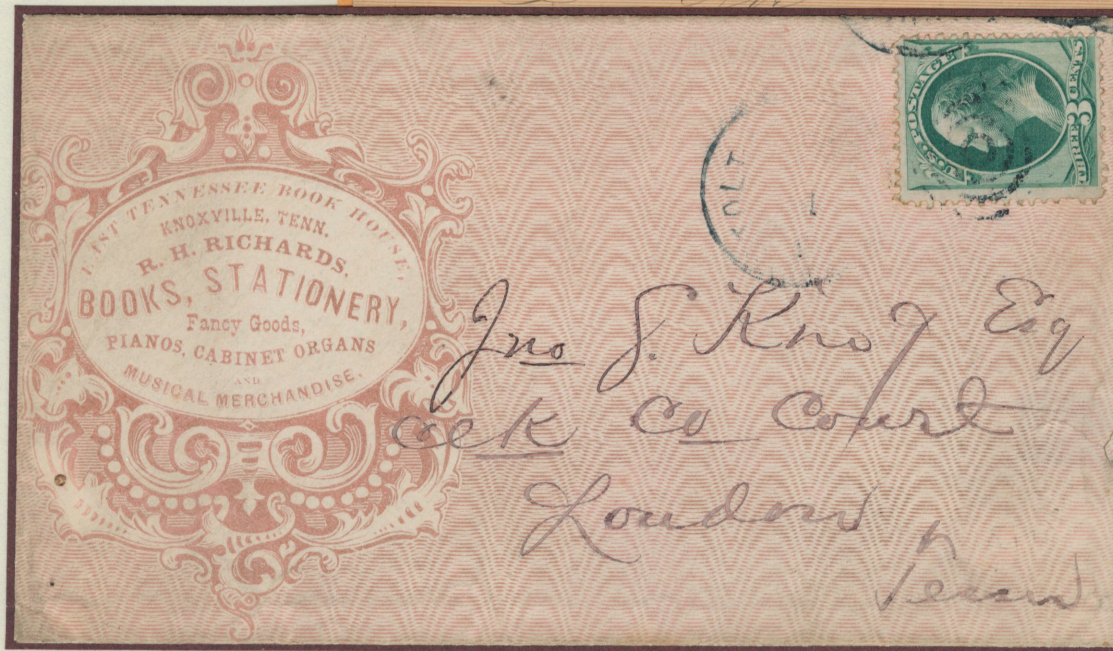 EAST TENNESSEE BOOK HOUSE,
KNOXVILLE, TENN.
R. H. RICHARDS,
BOOKS, STATIONERY,
Fancy Goods,
PIANOS, CABINET ORGANS
AND
MUSICAL MERCHANDISE.
U.S. POSTAGE
THREE 3 CENTS
Jno S. Knox Esq
Clk Co Court
Loudon
Tenn